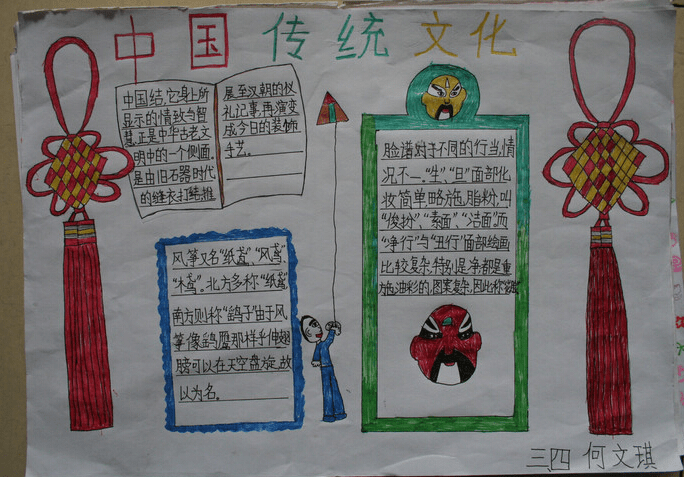 中国传统文化
中国结，它身上所
显示的情致与智
慧，正是中华古老文
明中的一个侧面，
是由旧石器时代
的缝衣打结，推
展至汉朝的仪
礼记事，再演变
成今日的装饰
手艺。
风筝又名“纸鸢”、“风鸢”、
“木鸢”。北方多称“纸鸢”，
南方则称“鹞子”由于风
筝像鹞鹰那样平伸翅
膀可以在天空盘旋，故
以为名。
脸谱对于不同的行当，情
况不一。“生”、“旦”面部化
妆简单略施，脂粉，叫
“俊扮”、“素面”、“洁面”。而
“净行”与“丑行”面部绘画
比较复杂，特别是净都是重
施油彩的，图案复杂，因此称
三、四 何文琪